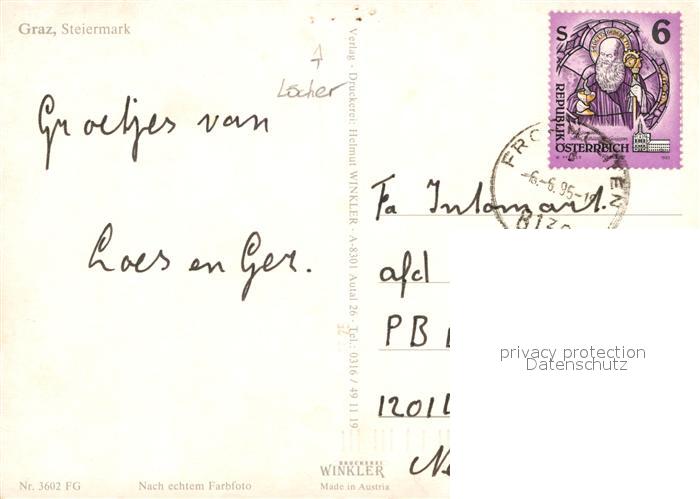 Graz, Steiermark
Löcher
Groetjes van
Loes en Ger.
Verlag - Druckerei: Helmut WINKLER - A-8301 Autal 26 - Tel.: 0316 / 49 11 19
S 6
REPUBLIK
ÖSTERREICH
-6.-6.95-1
8130
Fa Intomart.
afd
PB
1201
privacy protection
Datenschutz
Nr. 3602 FG
Nach echtem Farbfoto
DRUCKEREI
WINKLER
Made in Austria